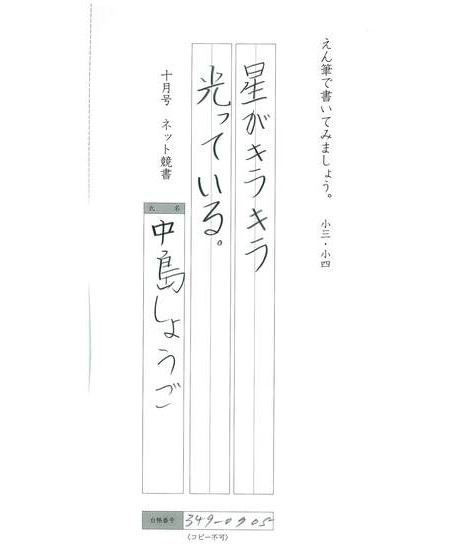 えん筆で書いてみましょう。 小三・小四
星がキラキラ
光っている。
十月号 ネット競書
氏名
中島しょうご
台帳番号 349-0905
〈コピー不可〉